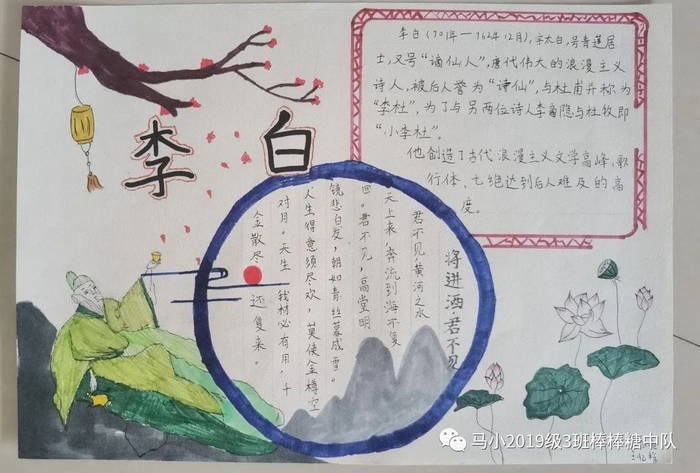 李白
李白（701年—762年12月），字太白，号青莲居
士，又号“谪仙人”，唐代伟大的浪漫主义
诗人，被后人誉为“诗仙”，与杜甫并称为
“李杜”，为了与另两位诗人李商隐与杜牧即
“小李杜”。
他创造了古代浪漫主义文学高峰、歌
行体、七绝达到后人难及的高
度。
将进酒·君不见
君不见，黄河之水
天上来，奔流到海不复
回。君不见，高堂明
镜悲白发，朝如青丝暮成雪。
人生得意须尽欢，莫使金樽空
对月。天生我材必有用，千
金散尽还复来。
马小2019级3班棒棒糖中队